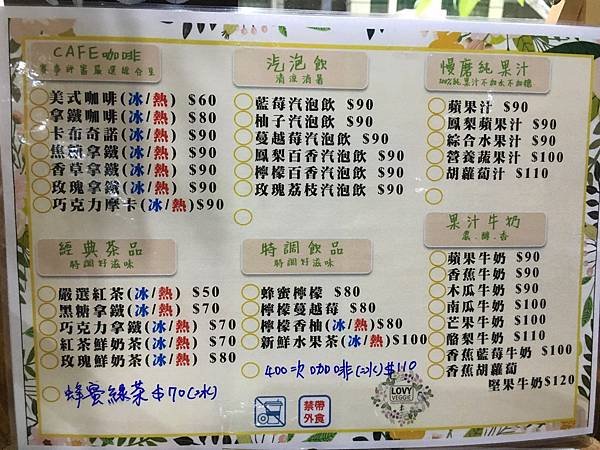 CAFE咖啡
美式咖啡(冰/熱) $60
拿鐵咖啡(冰/熱) $80
卡布奇諾(冰/熱) $90
焦糖拿鐵(冰/熱) $90
香草拿鐵(冰/熱) $90
玫瑰拿鐵(冰/熱) $90
巧克力摩卡(冰/熱)$90
經典茶品
特調好滋味
嚴選紅茶(冰/熱) $50
黑糖拿鐵(冰/熱) $70
巧克力拿鐵(冰/熱) $70
紅茶鮮奶茶(冰/熱) $70
玫瑰鮮奶茶(冰/熱) $80
蜂蜜綠茶$70(冰)
汽泡飲
清涼消暑
藍莓汽泡飲 $90
柚子汽泡飲 $90
蔓越莓汽泡飲 $90
鳳梨百香汽泡飲 $90
檸檬百香汽泡飲 $90
玫瑰荔枝汽泡飲 $90
特調飲品
特調好滋味
蜂蜜檸檬 $80
檸檬蔓越莓 $80
檸檬香柚(冰/熱)$80
新鮮水果茶(冰/熱)$100
400次咖啡(冰)$110
慢磨純果汁
100%純果汁不加水不加糖
蘋果汁 $90
鳳梨蘋果汁 $90
綜合水果汁 $90
營養蔬果汁 $100
胡蘿蔔汁 $110
果汁牛奶
濃.醇.香
蘋果牛奶 $90
香蕉牛奶 $90
木瓜牛奶 $90
南瓜牛奶 $100
芒果牛奶 $100
酪梨牛奶 $110
香蕉藍莓牛奶 $100
香蕉胡蘿蔔
堅果牛奶$120
禁帶
外食
LOVY
VEGGIE